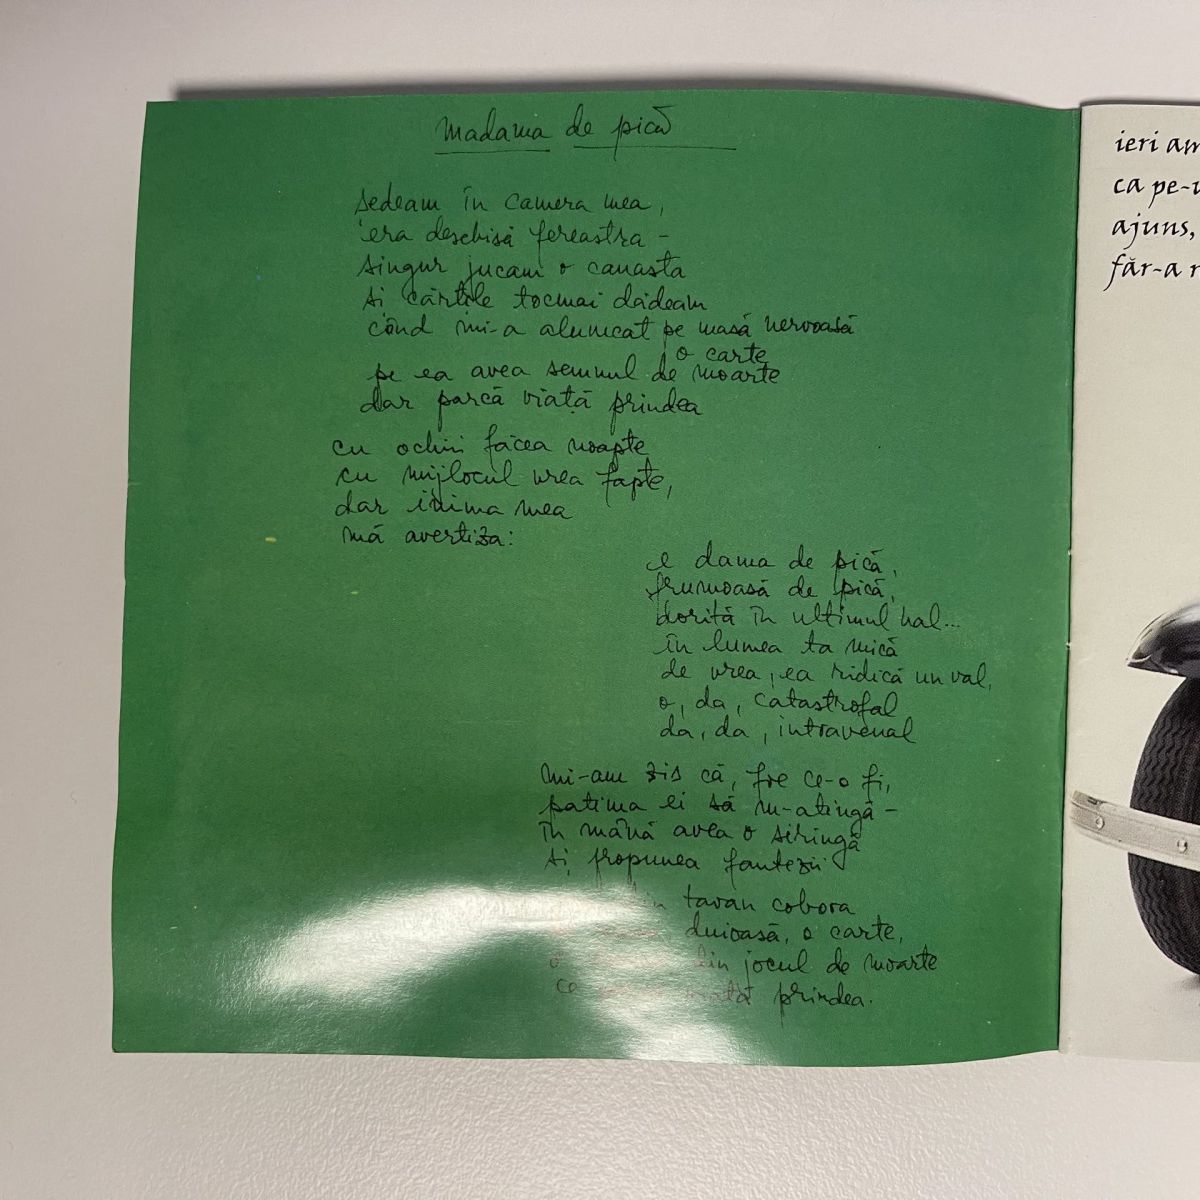 Madama de pică
ședeam în camera mea,
era deschisă fereastra -
singur jucam o canasta
și cărțile tocmai dădeam
când mi-a alunecat pe masă nervoasă
o carte
pe ea avea semnul de moarte
dar parcă viață prindea
cu ochii făcea noapte
cu mijlocul vrea fapte,
dar inima mea
mă avertiza:
e dama de pică,
frumoasă de pică,
dorită în ultimul hal...
în lumea ta mică
de vrea, ea ridică un val,
o, da, catastrofal
da, da, intravenal
mi-am zis că, fie ce-o fi,
patima ei să m-atingă -
în mână avea o siringă
și propunea fantezii
din tavan cobora
duioasă, o carte,
o din jocul de moarte
ce viață prindea.
ieri am
ca pe-
ajuns,
făr-a